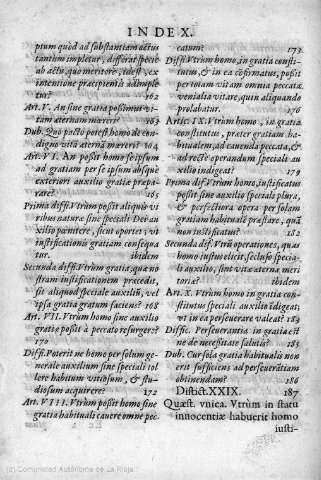 INDEX.
ptum quòd ad substantiam actus
tantum impletur, differat specie
ab actu, quo meritorè, idest, ex
intentione præcipientis adimple
tur? 162
Art. V. An sine gratia possimus vi-
tam æternam mereri? 163
Dub. Quo pacto potest homo de con-
digno vitã æternã mereri? 164
Art. VI. An possit homo se ipsum
ad gratiam per se ipsum absque
exteriori auxilio gratiæ præpa-
rare? 165
Prima diff. Vtrùm possit aliquis vi-
ribus naturæ sine speciali Dei au-
xilio pœnitere, sicut oportet; vt
iustificationis gratiam consequa
tur. ibidem
Secunda diff. Vtrùm gratia, quæ no
stram iustificationem præcedit,
sit aliquod speciale auxiliũ, vel
ipsa gratia gratum faciens? 168
Art. VII. Vtrùm homo sine auxilio
gratiæ possit à peccato resurgere?
170
Diff. Poterit ne homo per solum ge-
nerale auxilium sine speciali tol
lere habitum vitiosum, & stu-
diosum acquirere? 172
Art. VIII. Vtrùm possit homo sine
gratia habituali cauere omne pec-
catum? 173
Diff. Vtrùm homo, in gratia consti-
tutus, & in ea cõfirmatus, possit
per totam vitam omnia peccata,
venialia vitare, quin aliquando
prolabatur. 176
Artic. IX. Vtrùm homo, in gratia
constitutus, præter gratiam ha-
bitualem, ad cauenda peccata, &
ad rectè operandum speciali au
xilio indigeat? 179
Prima dif. Vtrùm homo, iustificatus
possit sine auxilio speciali plura,
& perfectiora opera per solam
gratiam habitualē præstare, quã
non iustificatus? 182
Secunda dif. Vtrũ operationes, quas
homo iustus elicit, secluso specia-
li auxilio, sint vitæ æternæ merì
toriæ? ibidem
Art. X. Vtrùm homo in gratia con
stitutus speciali auxilio idigeat;
vt in ea perseuerare valeat? 183
Diffic. Perseuerantia in gratia est
ne de necessitate salutis? 185
Dub. Cur sola gratia habitualis non
erit sufficiens ad perseuerãtiam
obtinendam? 186
Distict. XXIX. 187
Quæst. vnica. Vtrùm in statu
innocentiæ habuerit homo
iusti-
(c) Comunidad Autónoma de La Rioja